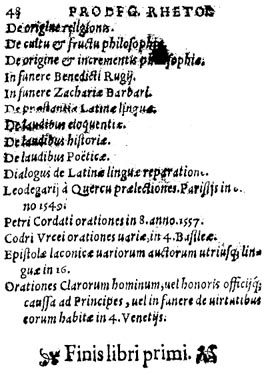 48 PRO DEG. RHETOR
De origine religionis.
De cultu & fructu philosophiæ.
De origine & incrementis philosophiæ.
In funere Benedicti Rugij.
In funere Zachariæ Barbari.
De præstantia Latinæ linguæ.
De laudibus eloquentiæ.
De laudibus historiæ.
De laudibus Poëticæ.
Dialogus de Latinæ linguæ reparatione.
Leodegarij à Quercu prælectiones. Parisijs in
no 1549.
Petri Cordati orationes in 8. anno. 1557.
Codri Vrcei orationes uariæ, in 4. Basileæ.
Epistolæ laconicæ uariorum auctorum utriusq; lin-
guæ in 16.
Orationes Clarorum hominum, uel honoris officijq;
caussa ad Principes, uel in funere de uirtutibus
eorum habitæ in 4. Venetijs.
Finis libri primi.